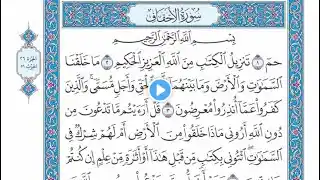 سُورَةُ الأَحْقَافِ
بِسْمِ اللَّهِ الرَّحْمَٰنِ الرَّحِيمِ
حمٓ ١ تَنزِيلُ الْكِتَٰبِ مِنَ اللَّهِ الْعَزِيزِ الْحَكِيمِ ٢ مَا خَلَقْنَا
السَّمَٰوَٰتِ وَالْأَرْضَ وَمَا بَيْنَهُمَا إِلَّا بِالْحَقِّ وَأَجَلٍ مُّسَمًّى وَالَّذِينَ
كَفَرُوا عَمَّا أُنذِرُوا مُعْرِضُونَ ٣ قُلْ أَرَءَيْتُم مَّا تَدْعُونَ مِن
دُونِ اللَّهِ أَرُونِي مَاذَا خَلَقُوا مِنَ الْأَرْضِ أَمْ لَهُمْ شِرْكٌ فِي
السَّمَٰوَٰتِ ائْتُونِي بِكِتَٰبٍ مِّن قَبْلِ هَٰذَا أَوْ أَثَٰرَةٍ مِّنْ عِلْمٍ إِن كُنتُمْ